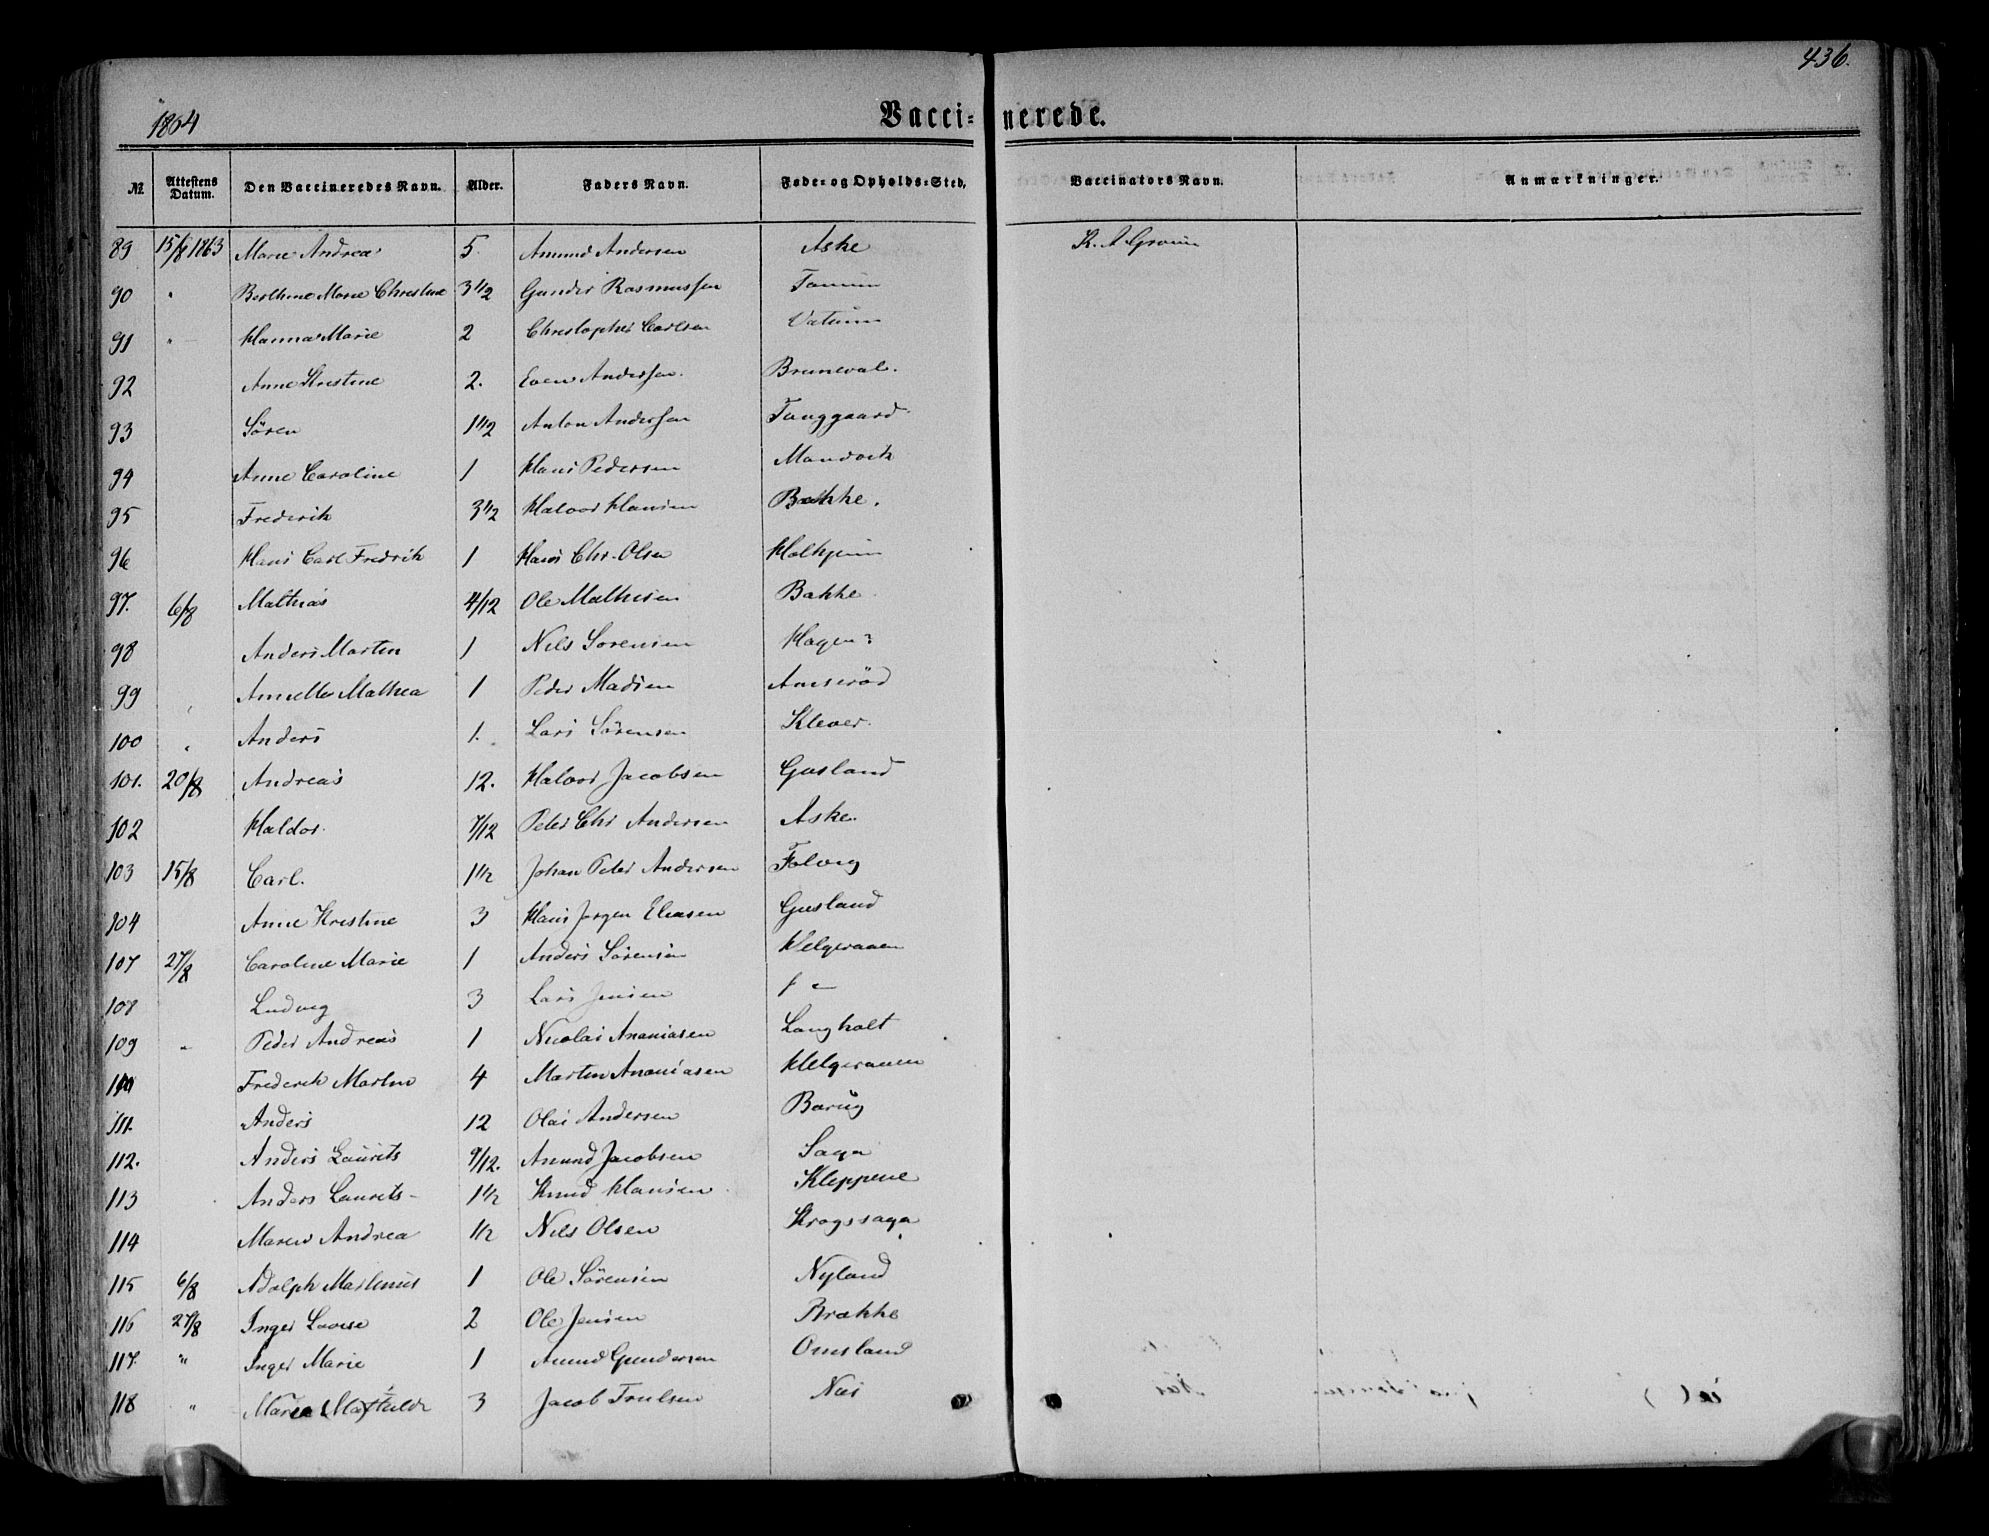 436.
1864
Vaccinerede.
№ Attestens Datum. Den Vaccineredes Navn. Alder. Faders Navn. Føde- og Opholds-Sted. Vaccinators Navn. Anmærkninger.
89 15/8 1863 Maren Andrea 5. Amund Andersen Aske
90 " Berthine Marie Christine 3 1/2 Gunder Rasmussen Tanum
91 " Hanna Marie 2 Christopher Carlsen Vatium
92 Anne Kristine 2. Even Andersen. Bruneval.
93 Søren 1 1/2 Anton Andersen Tanggaard
94 Anne Caroline 1 Hans Pedersen Mandvik
95 Frederik 3 1/2 Halvor Hansen Bakke.
96 Hans Carl Fredrik 1 Hans Chr. Olsen Holhjem
97. 6/8 Mathias 4/12 Ole Mathisen Bakke
98 Anders Martin 1 Nils Sorensen Hagen
99 " Annette Mathea 1 Peder Madsen Amserød
100 " Anders 1. Lars Sørensen Klever.
101. 20/8 Andreas 12. Halvor Jacobsen Gusland
102 Haldor. 7/12 Peter Chr Andersen Aske.
103 15/8 Carl. 1 1/2 Johan Peter Andersen Folvig
104 Anne Kristine 3 Hans Jørgen Eliasen Gusland
107 27/8 Caroline Marie 1 Anders Sørensen Helgeraaen
108 Ludvig 3 Lars Jensen
109 " Peder Andreas 1 Nicolai Ananiasen Langholt
110 Frederik Martin 4 Martin Ananiasen Helgeraaen
111. Anders 12 Olai Andersen Barug
112. Anders Laurits 9/12. Amund Jacobsen Saga
113 Anders Laurits 1 1/2 Knud Hansen Kleppene
114 Maren Andrea 1/2 Nils Olsen Krogssaga
115 6/8 Adolph Martinius 1 Ole Sørensen Nyland
116 27/8 Inger Lovise 2 Ole Jensen Brække
117. " Inger Marie 1 Amund Gundersen Omsland
118 " Maren Mathilde 3 Jacob Trulsen Næs